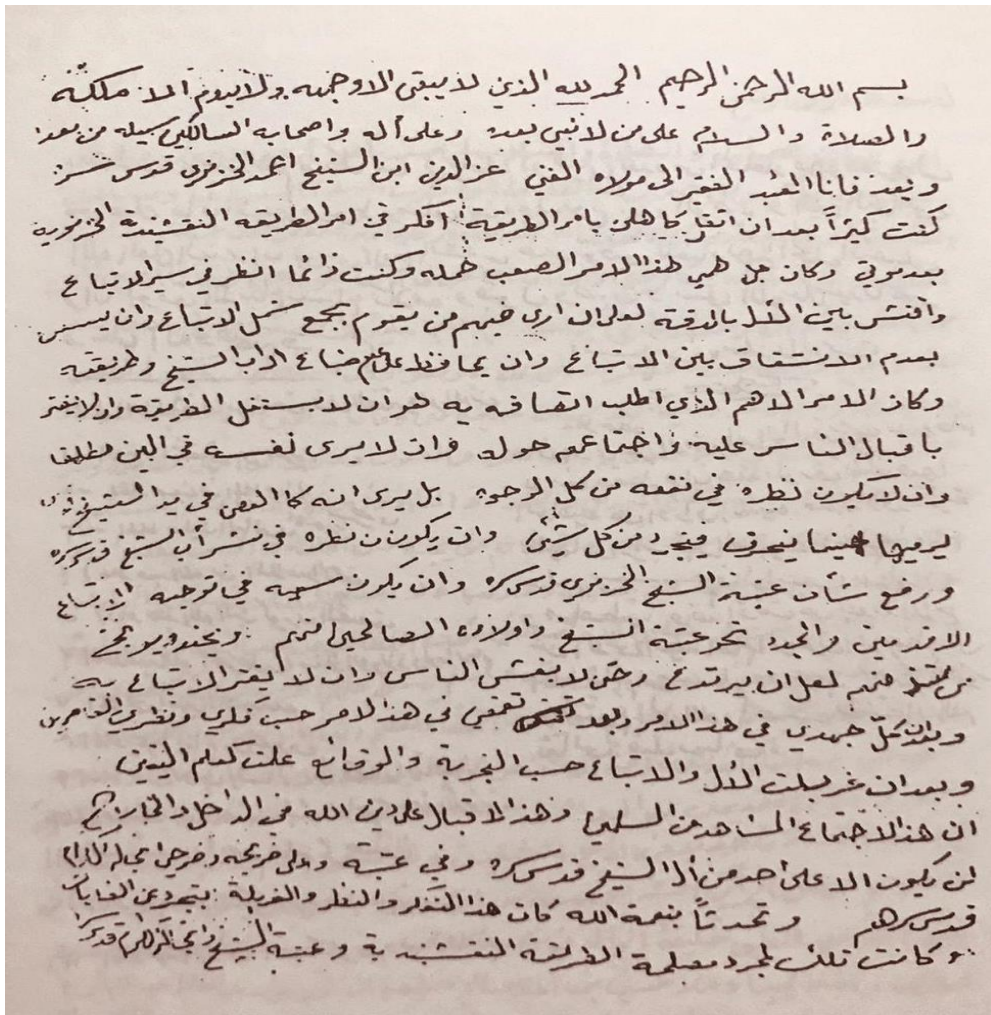 بسم الله الرحمن الرحيم الحمد لله الذي لا يبقى الا وجهه ولا يدوم الا ملكه
والصلاة والسلام على من لا نبي بعده وعلى أله واصحابه السالكين سبيله من بعد
وبعد فانا العبد الفقير الى مولاه الغني عزالدين ابن الشيخ احمد الخزنوي قدس سره
كنت كثيراً بعد ان اتقل كاهلي بامر الطريقة أفكر في امر الطريقه النقشبندية الخزنوية
بعد موتي وكان جل همي هذا الامر الصعب حمله وكنت دائما انظر في سير الاتباع
وافتش بين الملل بالدقة لعلى ان ارى فيهم من يقوم بجمع شمل الاتباع وان يسعى
بعدم الانشقاق بين الاتباع وان يحافظ على ضياع اداب الشيخ وطريقته
وكان الامر الاهم الذي اطلب اتصافه به هو ان لا يستغل الطريقة وان لا يغتر
باقبال الناس عليه واجتماعهم حوله وان لا يرى نفسه في البين مطلقا
وان لا يكون نظره في نفعه من كل الوجوه بل يرى انه كالعصى في يد الشيخ
ليرميها حينما ينحرف ويتجرد من كل شيئ وان يكون نظره في نشر أن الشيخ قدس سره
ورفع شأن عتبة الشيخ الخزنوي قدس سره وان يكون سعيه في توجه الاتباع
الاقدمين والجدد نحو عتبة الشيخ واولاده الصالحين منهم ويحذر ويوبخ
من منهم لعل ان يرتدع وحتى لا يغش الناس وان لا يغتر الاتباع به
وبذلت كل جهدي في هذا الامر وبعد تعمقي في هذا الامر حسب فكري ونظري القاصرين
وبعد ان غربلت الأل والاتباع حسب التجربة والوقائع علمت كعلم اليقين
ان هذا الاجتماع المشاهد من المسلمين وهذا الاقبال على دين الله في الداخل والخارج
لن يكون الا على احد من أل الشيخ قدس سره وفي عتبة وعلى ضريحه وضريح انجاله الكرام
قدس سرهم وتحدثاً بنعمة الله كان هذا التفكر والنظر والغربلة بتجرد عن الغايات
وكانت تلك لمجرد مصلحة الطريقة النقشبندية وعتبة الشيخ وانجاله الكرام قدس